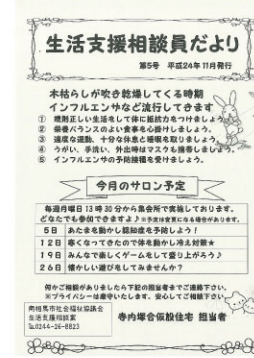 生活支援相談員だより
第5号　平成24年11月発行
木枯らしが吹き乾燥してくる時期
インフルエンザなど流行してきます
① 規則正しい生活をして体に抵抗力をつけましょう。
② 栄養バランスのよい食事を心掛けましょう。
③ 適度な運動、十分な休息と睡眠を取りましょう。
④ うがい、手洗い、外出時はマスクも携帯しましょう。
⑤ インフルエンザの予防接種を受けましょう。
今月のサロン予定
毎週月曜日13時30分から集会所で実施しております。
どなたでも参加できますよ♪※予定は変更になる場合があります。
5日　あたまを動かし認知症を予防しよう！
12日　寒くなってきたので体を動かし冷え対策★
19日　みんなで楽しくゲームをして盛り上がろう♪
26日　懐かしい遊びをしてみませんか？
何かご相談がありましたら下記の担当者までご連絡下さい。
※プライバシーは厳守いたします。安心してご相談下さい。
南相馬市社会福祉協議会
生活支援相談室
℡0244-26-8823
寺内塚合仮設住宅 担当者